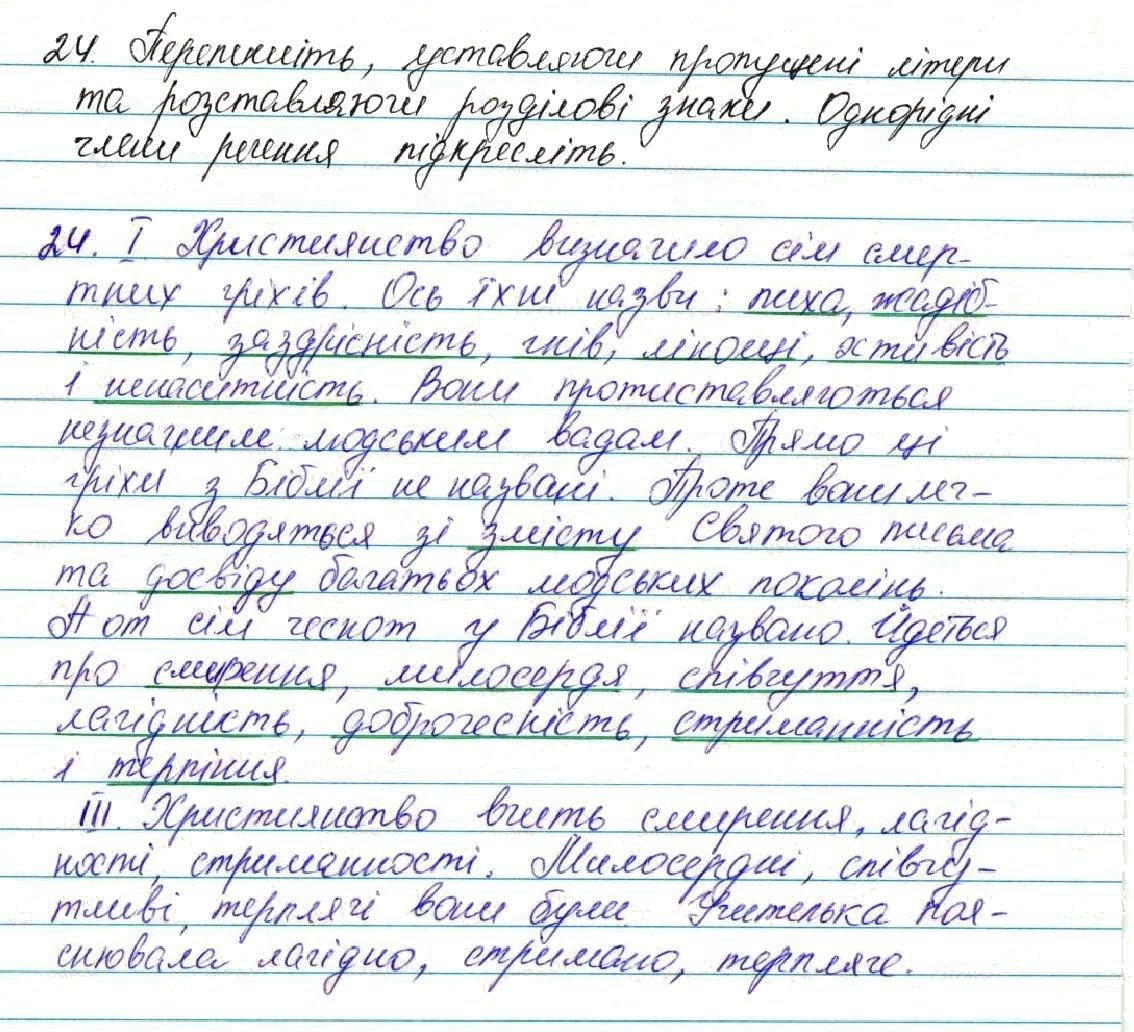 24. Перепишіть, уставляючи пропущені літери
та розставляючи розділові знаки. Однорідні
члени речення підкресліть.
24. I Християнство визначило сім смер-
тних гріхів. Ось їхні назви: пиха, жадіб-
ність, заздрісність, гнів, лінощі, хтивість
і ненаситність. Вони протиставляються
незначним людським вадам. Прямо ці
гріхи з Біблії не названі. Проте вони лег-
ко виводяться зі змісту Святого письма
та досвіду багатьох людських поколінь.
А от сім чеснот у Біблії названо. Йдеться
про смирення, милосердя, співчуття,
лагідність, доброчесність, стриманність
і терпіння.
III. Християнство вчить смирення, лагід-
ності, стриманності. Милосердні, співчу-
тливі, терплячі вони були. Учителька поя-
снювала лагідно, стримано, терпляче.